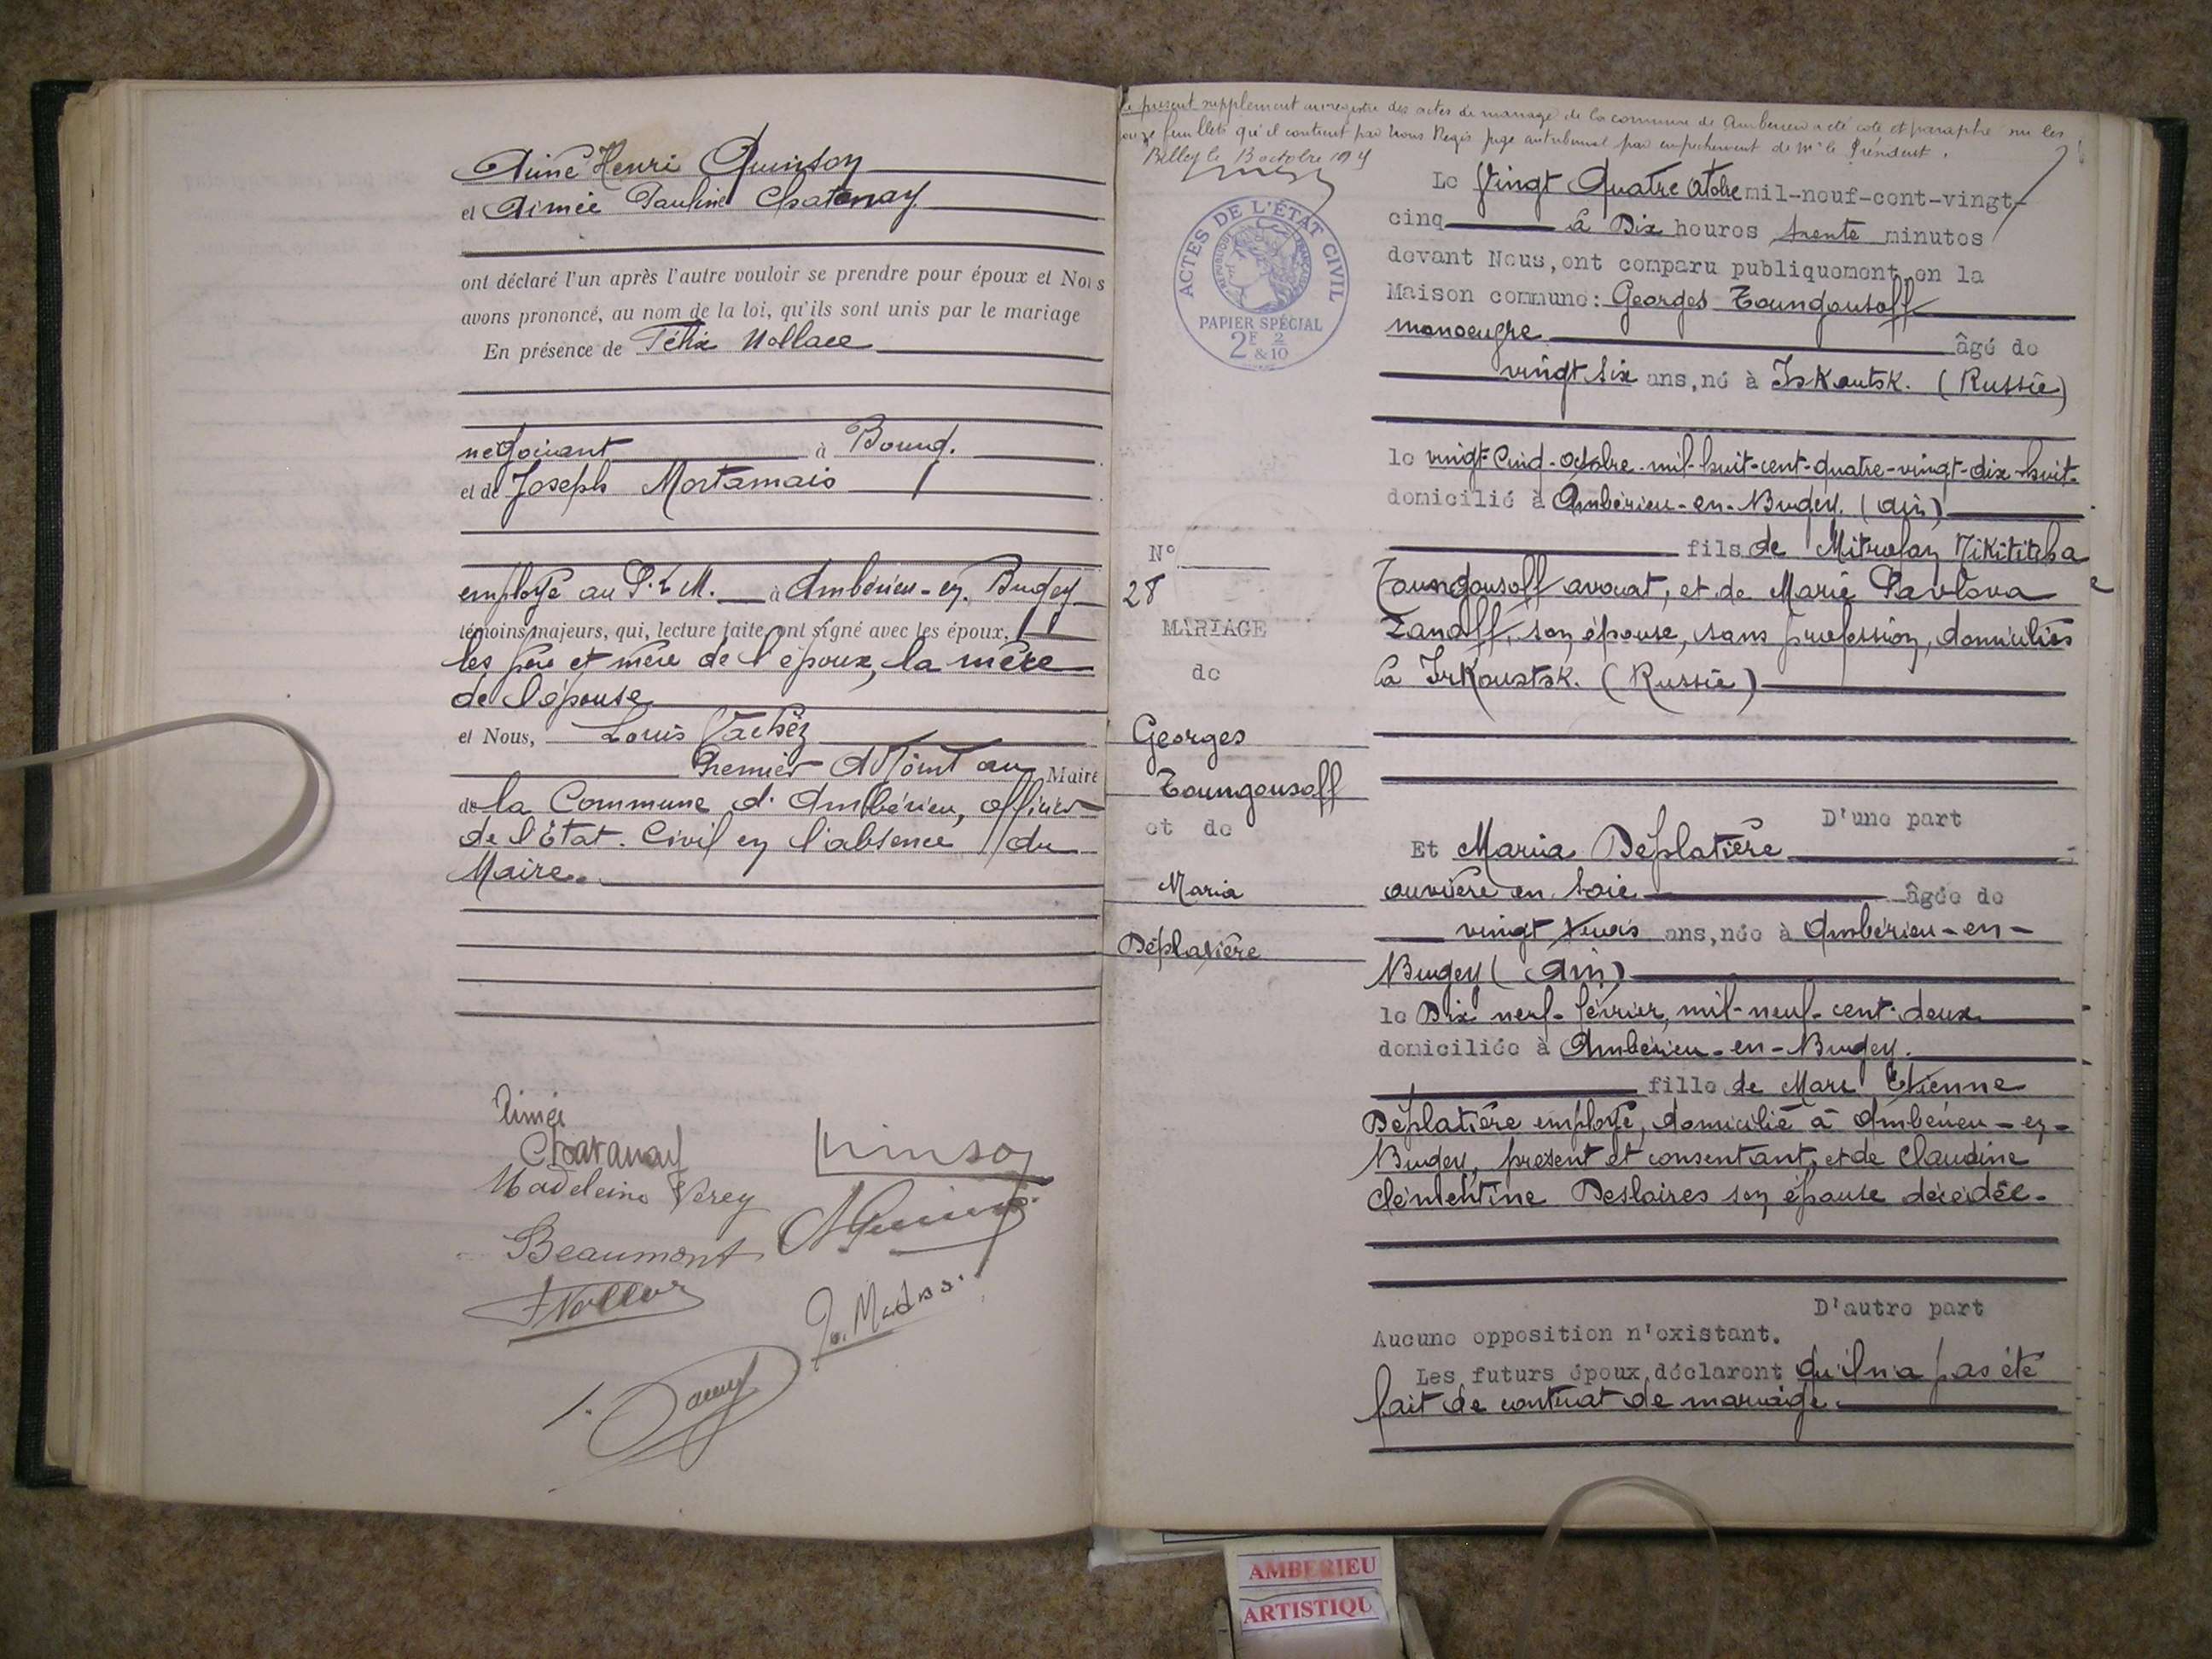 Aimé Henri Quinson
et Aimée Pauline Chatanay
ont déclaré l'un après l'autre vouloir se prendre pour époux et Nous
avons prononcé, au nom de la loi, qu'ils sont unis par le mariage
En présence de Félix Nollace
négociant à Bourg.
et de Joseph Mortamais
employé au P.L.M. à Ambérieu-en-Bugey
témoins majeurs, qui, lecture faite ont signé avec les époux,
les père et mère de l'époux, la mère
de l'épouse
et Nous, Louis Vachez
Premier Adjoint au Maire
de la Commune d'Ambérieu, officier
de l'État-Civil en l'absence du
Maire.
Aimée
Chatanay
Quinson
Madeleine Verey
Beaumont
Le présent supplément au registre des actes de mariage de la commune de Ambérieu a été coté et paraphé sur les
onze feuillets qu'il contient par nous Regis juge au tribunal par empêchement de Mr le Président.
Belley le 13 octobre 1925
ACTES DE L'ÉTAT CIVIL
RÉPUBLIQUE FRANÇAISE
PAPIER SPÉCIAL
2F 2/10
&
Le Vingt Quatre Octobre mil-neuf-cent-vingt-
cinq à Dix heures trente minutes
devant Nous, ont comparu publiquement en la
Maison commune: Georges Toungousoff
manoeuvre âgé de
vingt six ans, né à Irkoutsk. (Russie)
le vingt-cinq-octobre-mil-huit-cent-quatre-vingt-dix-huit-
domicilié à Ambérieu-en-Bugey. (Ain)
fils de Mitrofan Nikititcha
Toungousoff avocat, et de Marie Pavlova
Zanoff, son épouse, sans profession, domiciliés
à Irkoustsk. (Russie)
N°
28
MARIAGE
de
Georges
Toungousoff
et de
Maria
Déplatière
D'une part
Et Maria Déplatière
ouvrière en soie âgée de
vingt trois ans, née à Ambérieu-en-
Bugey (Ain)
le Dix neuf-février, mil-neuf-cent-deux
domiciliée à Ambérieu-en-Bugey.
fille de Marc Etienne
Déplatière employé, domicilié à Ambérieu-en-
Bugey, présent et consentant, et de Claudine
Clémentine Deslaires son épouse décédée.
D'autre part
Aucune opposition n'existant.
Les futurs époux déclarent qu'il n'a pas été
fait de contrat de mariage.
AMBERIEU
ARTISTIQU